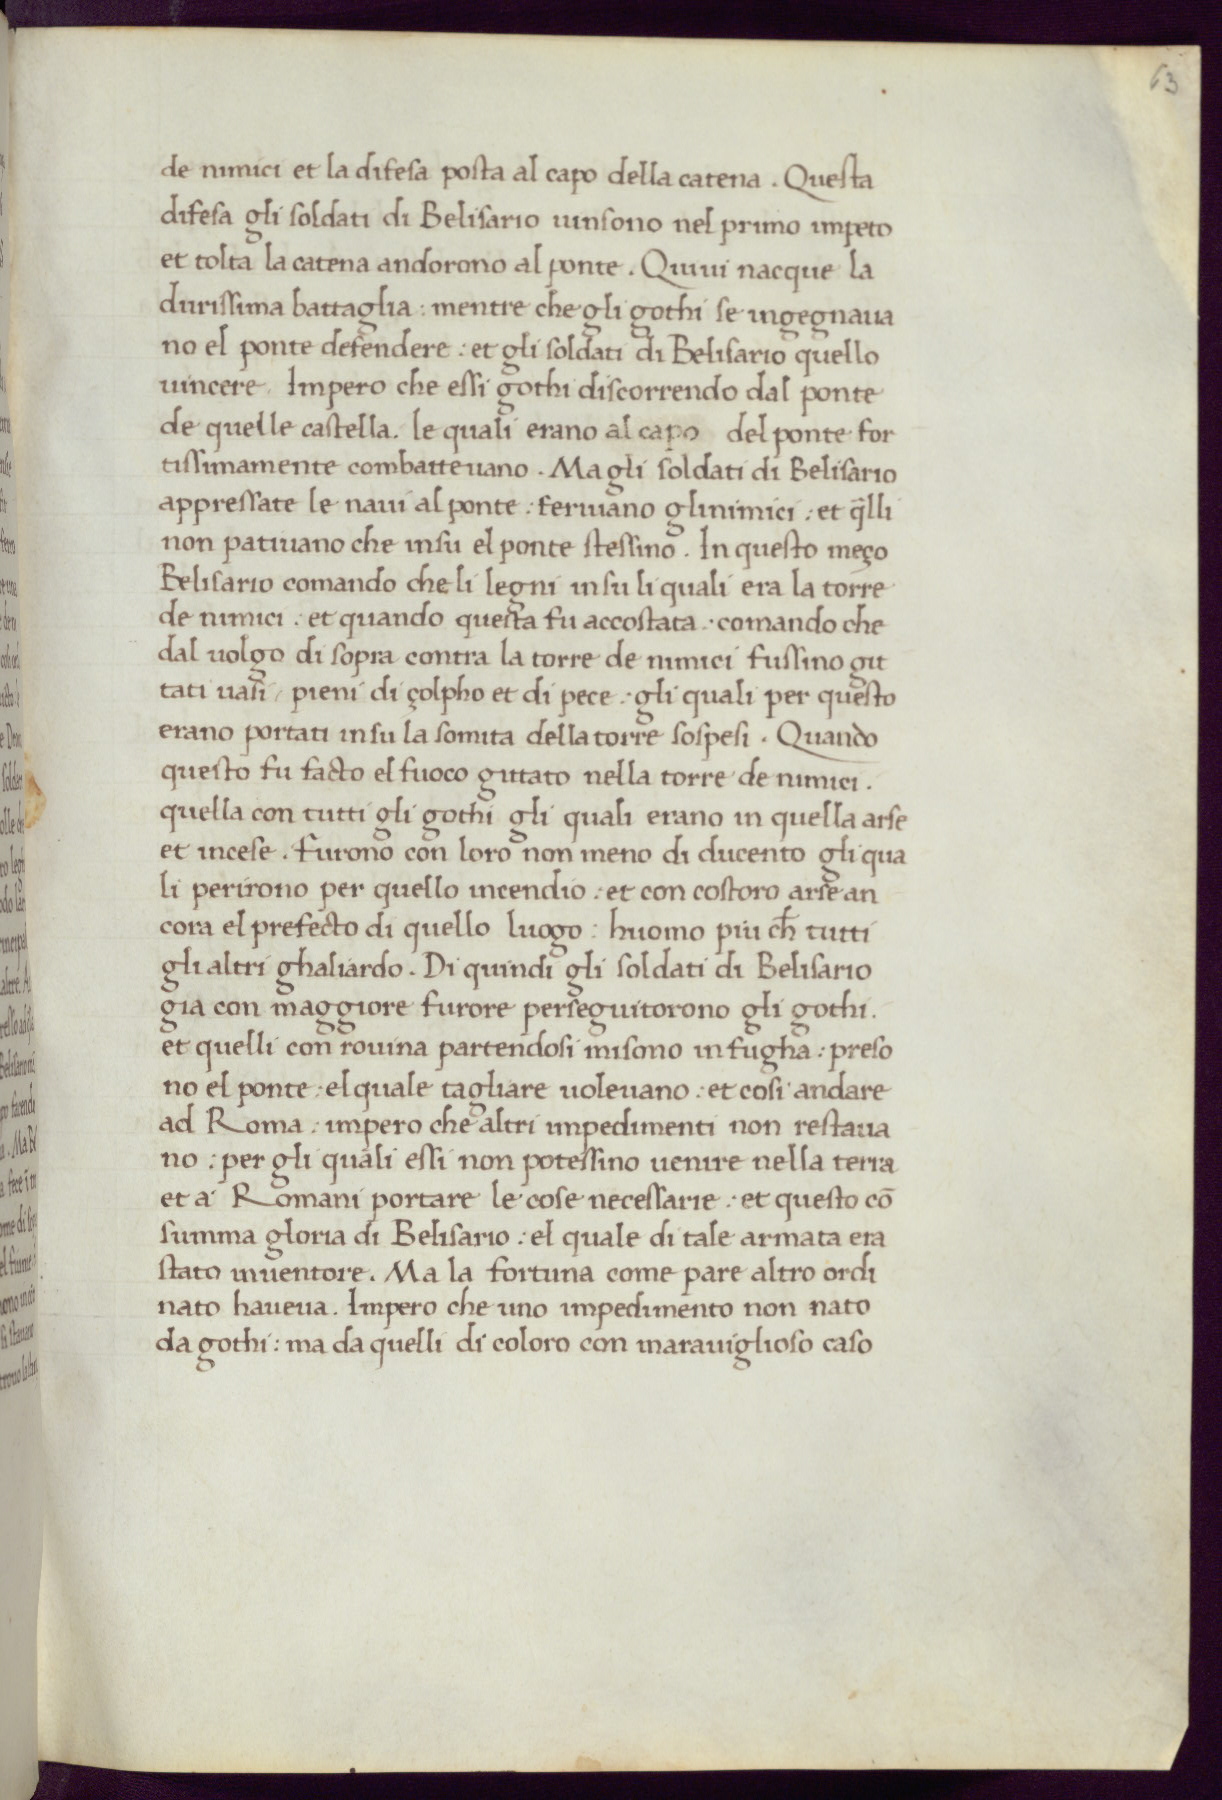 63
de nimici et la difesa posta al capo della catena . Questa
difesa gli soldati di Belisario uinsono nel primo impeto
et tolta la catena andorono al ponte . Quiui nacque la
durissima battaglia : mentre che gli gothi se ingegnaua
no el ponte defendere : et gli soldati di Belisario quello
uincere . Impero che essi gothi discorrendo dal ponte
de quelle castella . le quali erano al capo del ponte for
tissimamente combatteuano . Ma gli soldati di Belisario
appressate le naui al ponte : feriuano glinimici : et q̃lli
non patiuano che insu el ponte stessino . In questo meço
Belisario comando che li legni insu li quali era la torre
de nimici : et quando questa fu accostata : comando che
dal uolgo di sopra contra la torre de nimici fussino git
tati uasi / pieni di çolpho et di pece : gli quali per questo
erano portati insu la somita della torre sospesi . Quando
questo fu facto el fuoco gittato nella torre de nimici .
quella con tutti gli gothi gli quali erano in quella arse
et incese . furono con loro non meno di ducento gli qua
li perirono per quello incendio : et con costoro arse an
cora el prefecto di quello luogo : huomo piu ch̄ tutti
gli altri ghaliardo . Di quindi gli soldati di Belisario
gia con maggiore furore perseguitorono gli gothi .
et quelli con rouina partendosi misono in fugha : preso
no el ponte : el quale tagliare uoleuano : et cosi andare
ad Roma : impero che altri impedimenti non restaua
no : per gli quali essi non potessino uenire nella terra
et a Romani portare le cose necessarie : et questo cō
summa gloria di Belisario : el quale di tale armata era
stato inuentore . Ma la fortuna come pare altro ordi
nato haueua . Impero che uno impedimento non nato
da gothi : ma da quelli di coloro con marauiglioso caso